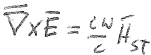 ∇̄×Ē = iω/c H̄_ST